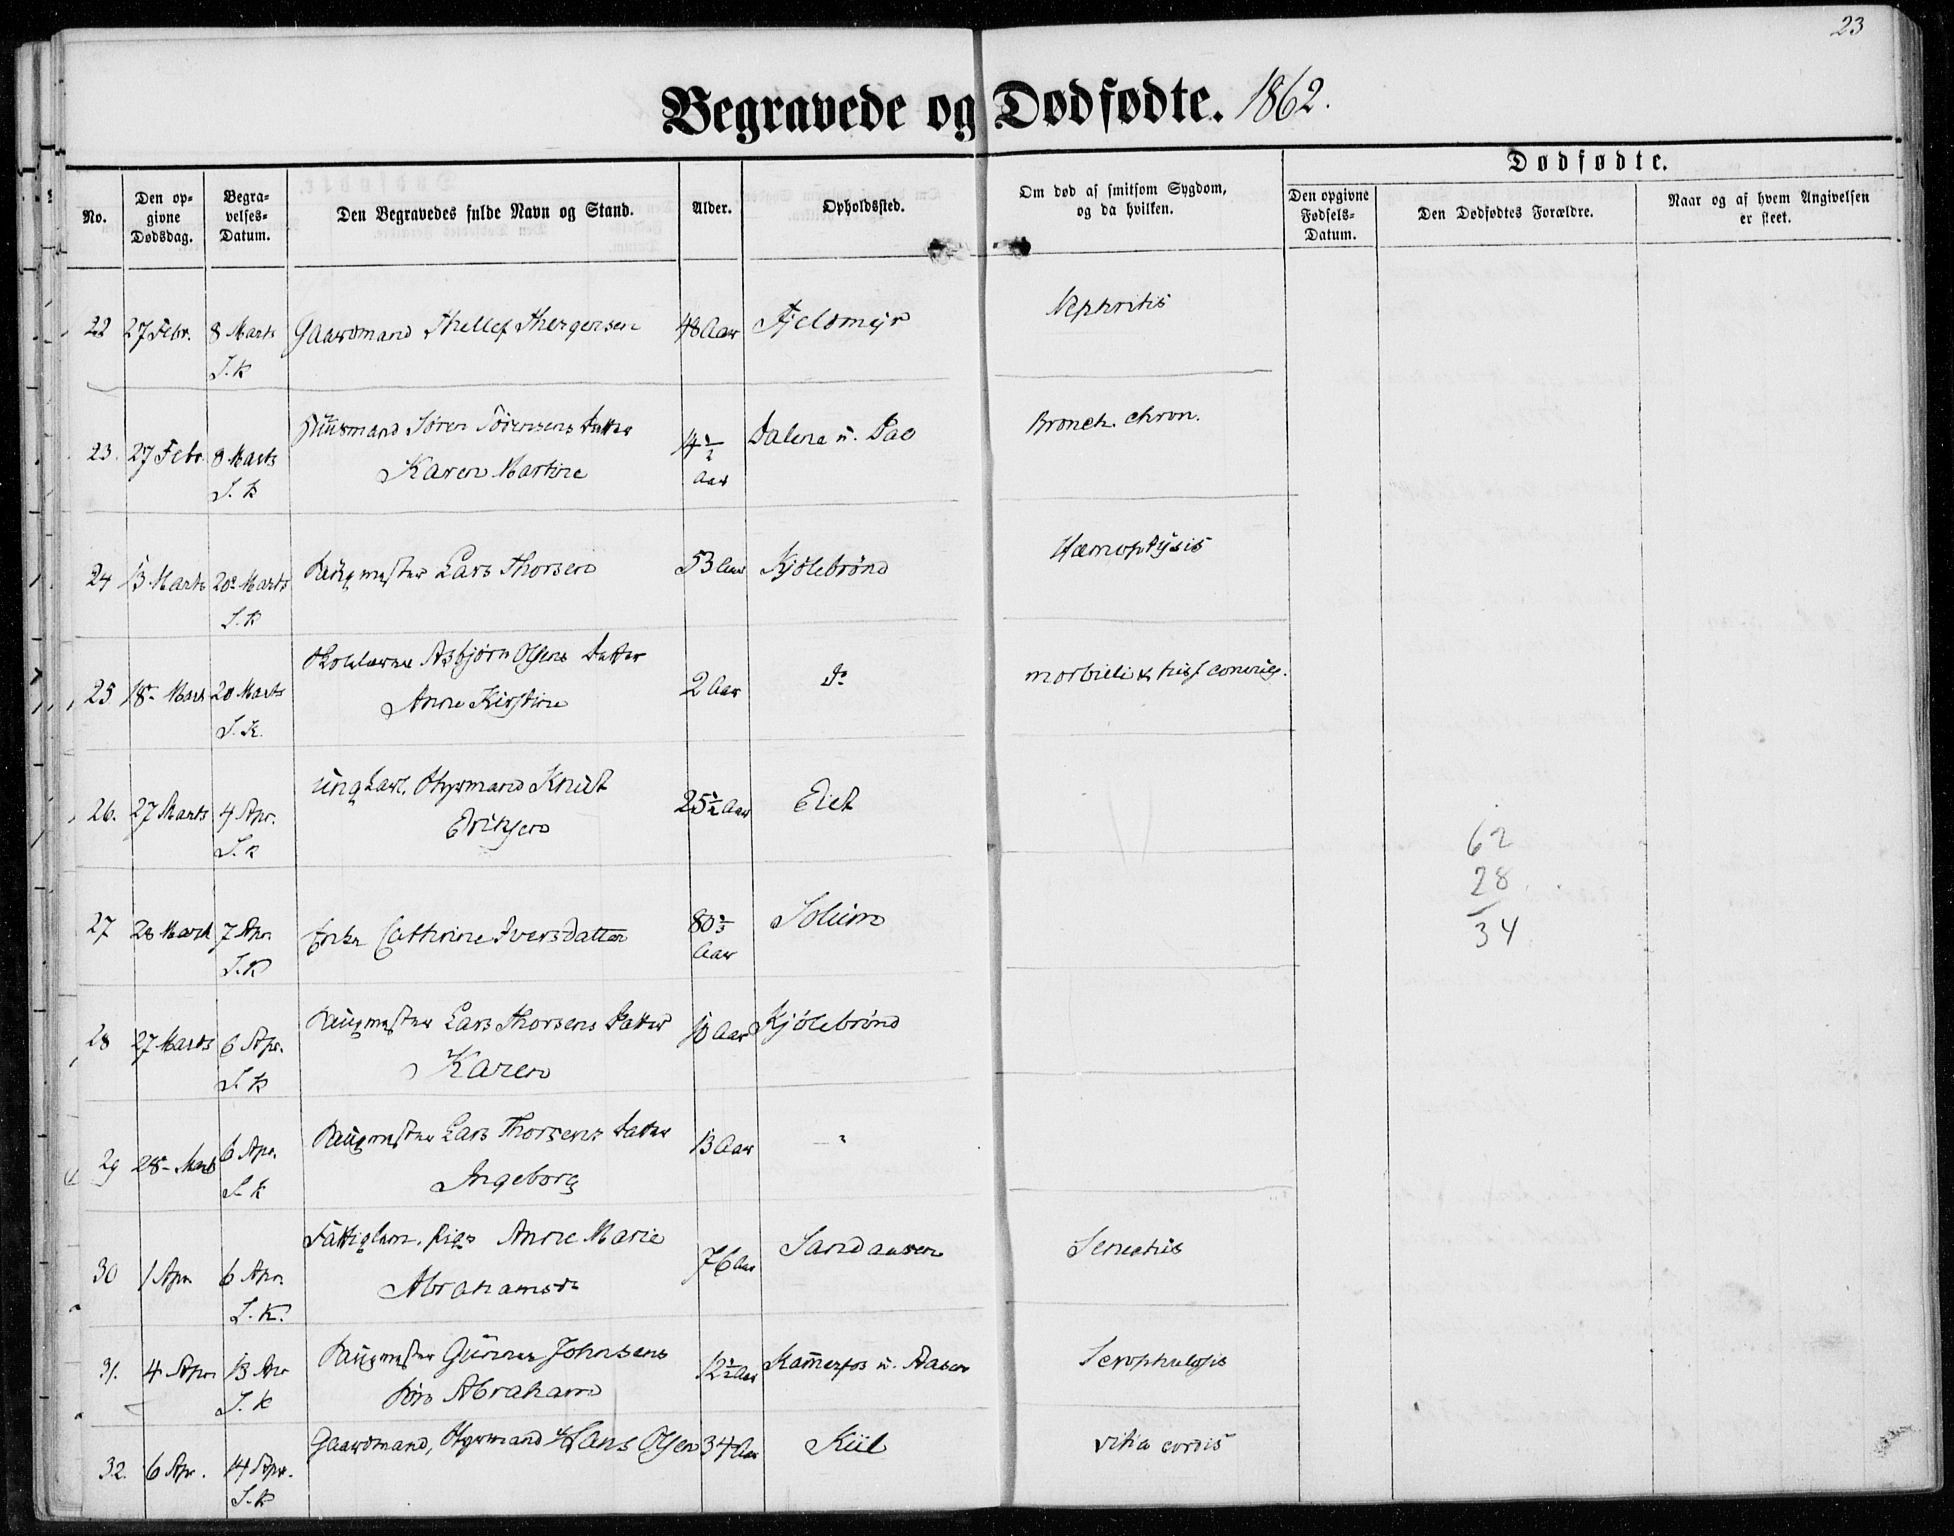 23
Begravede og Dødfødte. 1862.
No.
Den opgivne Dødsdag.
Begravelses-Datum.
Den Begravedes fulde Navn og Stand.
Alder.
Opholdssted.
Om død af smitsom Sygdom, og da hvilken.
Dødfødte.
Den opgivne Fødsels-Datum.
Den Dødfødtes Forældre.
Naar og af hvem Angivelsen er skeet.
22 27 Febr. 8 Marts Gaardmand Thellef Thergersen 48 Aar Fjeldmyr Nephritis
J.K
23. 27 Febr 8 Marts Huusmand Søren Sørensens Datter 4½ Dalene u. Dae Bronch. chron.
J.K Karen Martine Aar
24 13 Marts 20de Marts Laugmester Lars Thorsen 53 Aar Kjølebrønd Hæmoptysis
J.K
25 18de Mars 20 Marts Asbjørn Olsens Datter 2 Aar Do morbilli &
J.K. Anne Kirstine
26. 27 Marts 4 Apr. ungkarl. Styrmand Knut 25½ Aar Eiet
J.K Eriksen
27 28 March 7 Apr Enke Cathrine Iversdatter 80 Solum
J.K Aar
28 27 Marts 6 Apr. Laugmester Lars Thorsens Datter 10 Aar Kjølebrønd
J.K Karen
29 28de Mars 6 Apr. Laugmester Lars Thorsens Datter 13 Aar — "
J.K Ingeborg
30 1 Apr 6 Apr. Fattiglem. pige Anne Marie 76 Aar Sandaasen Senectus
J.K. Abrahamsdr
31. 4 Apr 13 Apr Laugmester Gunner Johnsens 12½ Aar Kammerfos u. Aasen Scrophulosis
J.K Søn Abraham
32. 6 Apr. 14 Apr. Gaardmand, Styrmand Hans Olsen 34 Aar Kiil vitia cordis
J.K
62
28
34